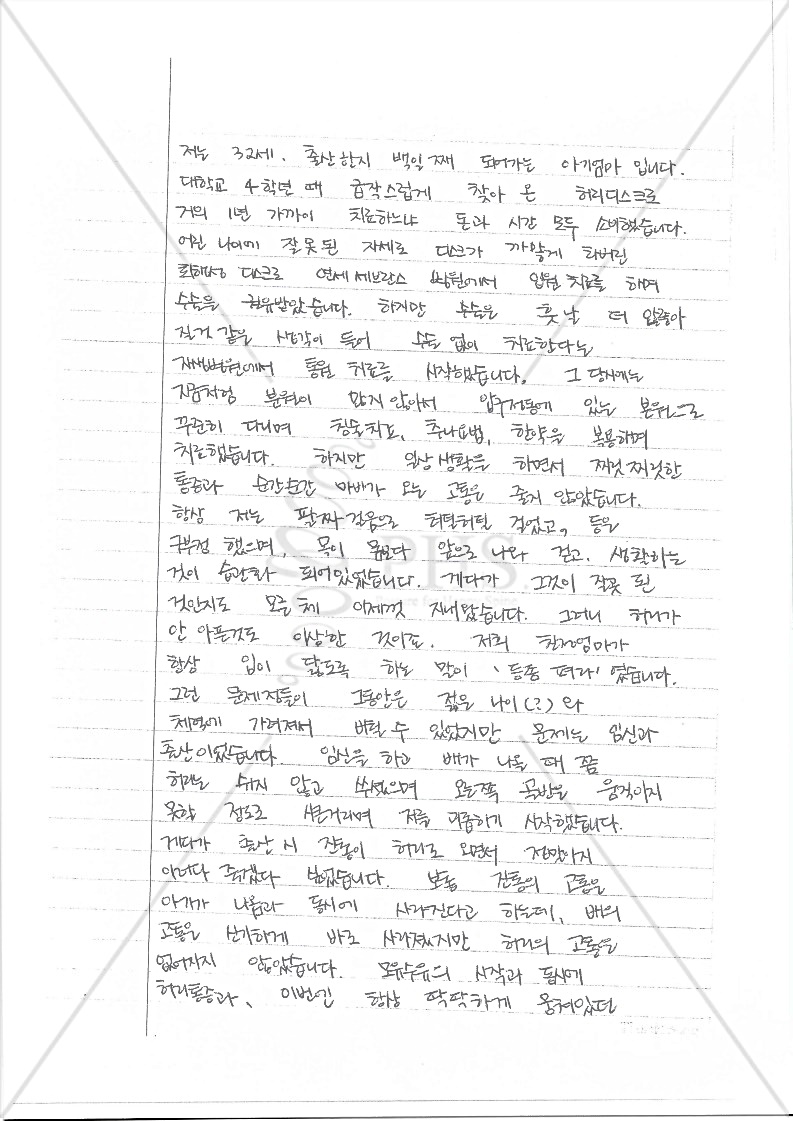 저는 32세. 출산한지 백일 째 되어가는 아기엄마 입니다.
대학교 4학년 때 급작스럽게 찾아 온 허리디스크로
거의 1년 가까이 치료하느냐 돈과 시간 모두 소비했습니다.
어린 나이에 잘못된 자세로 디스크가 까맣게 화버린
퇴행성 디스크로 연세 세브란스 병원에서 입원 치료를 하며
수술을 권유받았습니다. 하지만 수술은 훗날 더 안좋아
질것 같은 생각이 들어 수술 없이 치료한다는
자생병원에서 통원 치료를 시작했습니다. 그 당시에는
지금처럼 분원이 많지 않아서 압구정동에 있는 본원으로
꾸준히 다니며 침술치료, 추나요법, 한약을 복용하며
치료했습니다. 하지만 일상 생활을 하면서 찌릿찌릿한
통증과 순간순간 마비가 오는 고통은 줄지 않았습니다.
항상 저는 팔짜 걸음으로 터덜터덜 걸었고, 등은
구부정 했으며, 목이 몸보다 앞으로 나와 걷고. 생활하는
것이 습관화 되어있었습니다. 게다가 그것이 잘못 된
것인지도 모른 체 이제껏 지내왔습니다. 그러니 허리가
안 아픈것도 이상한 것이죠. 저희 친정엄마가
항상 입이 닳도록 하는 말이 '등좀 펴라' 였습니다.
그런 문제점들이 그동안은 젊은 나이(?) 와
체력에 가려져서 버틸 수 있었지만 문제는 임신과
출산이었습니다. 임신을 하고 배가 나올 때 쯤
허리는 쉬지 않고 쑤셨으며 오른쪽 골반은 움직이지
못할 정도로 시큰거리며 저를 괴롭히기 시작했습니다.
게다가 출산 시 진통이 허리로 오면서 정말이지
아프다 죽겠다 싶었습니다. 보통 진통의 고통은
아기가 나옴과 동시에 사라진다고 하는데, 배의
고통은 신기하게 바로 사라졌지만 허리의 고통은
없어지지 않았습니다. 모유수유의 시작과 동시에
허리통증과, 이번엔 항상 딱딱하게 뭉쳐있던
PHS